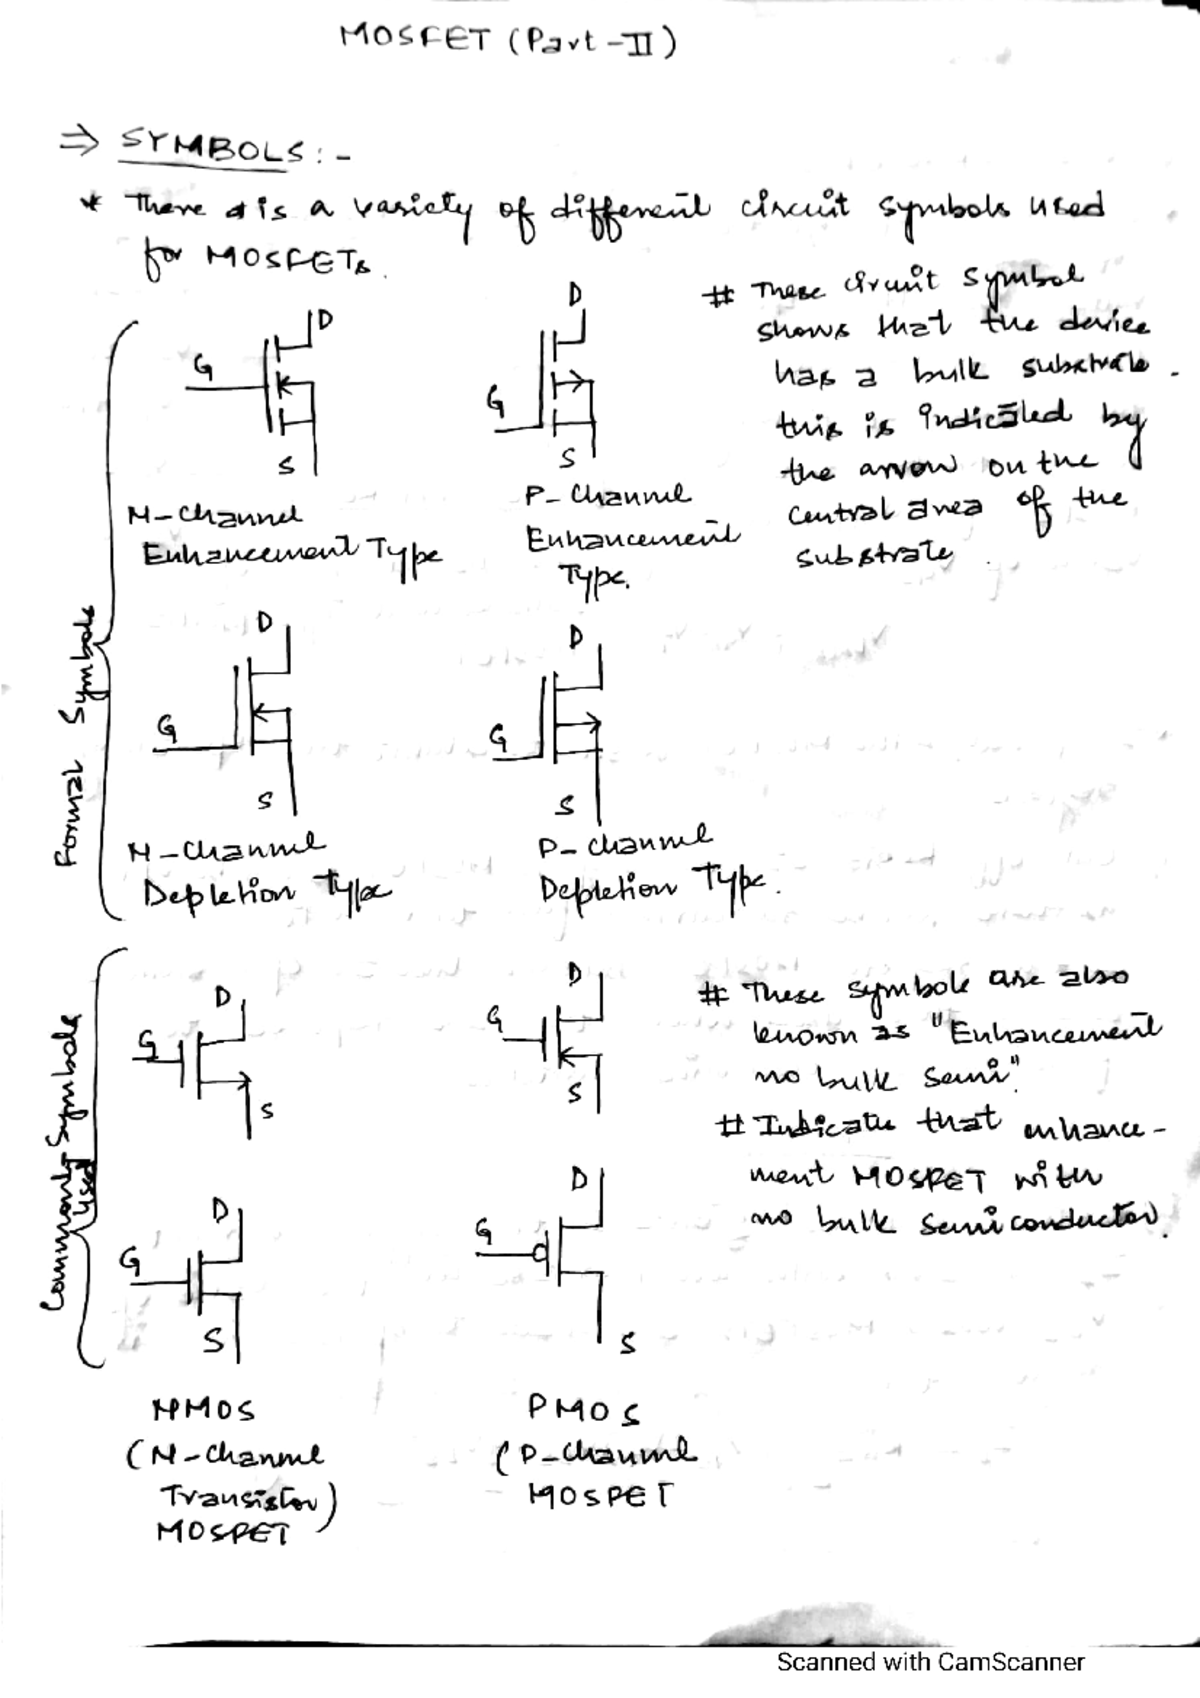 MOSFET (Part-II)
⇒ SYMBOLS :-
* There is a variety of different circuit symbols used
for MOSFETs.
# These circuit symbol
shows that the device
has a bulk substrate.
this is indicated by
the arrow on the
central area of the
substrate.
Formal Symbols
D
G
S
N-channel
Enhancement Type
D
G
S
P-channel
Enhancement
Type.
D
G
S
N-channel
Depletion Type
D
G
S
P-channel
Depletion Type.
Commonly Symbols
used
D
G
S
D
G
S
# These symbols are also
known as "Enhancement
no bulk semi".
# Indicate that enhance-
ment MOSFET with
no bulk semiconductor.
D
G
S
D
G
S
NMOS
(N-channel
Transistor)
MOSFET
PMOS
(P-channel
MOSFET
Scanned with CamScanner